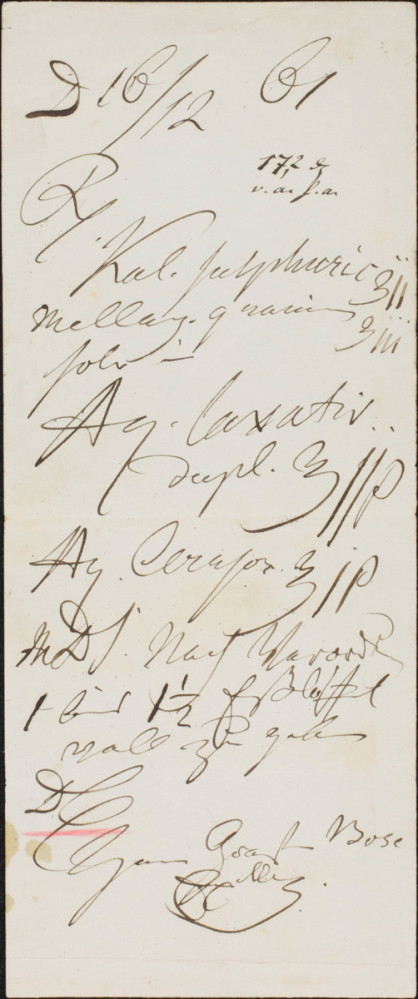 D 16/12 61
17,2
v. a. p. a.
Rp.
Kal. sulphuric ʒii
mellag. gramin ʒiii
solv
Aq. laxativ.
dupl. ʒiiβ
Aq. Cerasor. ʒiβ
MDS. Nach Verordn
1 bis 1½ Eßlöffel
voll zu geben
D
Graf Bose